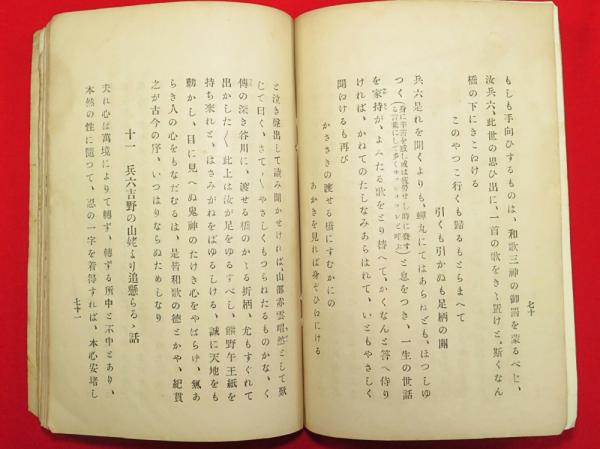 もしも手向ひするものは、和歌三神の御罰を蒙るべし、
汝兵六、此世の思ひ出に、一首の歌をきゝ置けと、斯くなん
橋の下にきこゆける
このやつこ行くも歸るもとらまへて
引くも引かぬも足柄の關
兵六是れを聞くよりも、蟬丸にてはあらねども、ほつしゆ
つく
と息をつき、一生の世話
を家持が、よみたる歌をとり替へて、かくなんと答へ侍り
ければ、かねてのたしなみあらはれて、いともやさしく
聞ゆけるも再び
かさゝぎの渡せる橋にすむかにの
あかきを見れば身ぞひゆにける
七十
と泣き聲出して讀み聞かせければ、山都赤雲喟然として歎
じて曰く、さて〳〵やさしくもつらねたるものかな、く
傳の深き谷川に、渡せる橋のかゝる折柄、尤もすぐれて
出かした〳〵此上は汝が足をゆるすべし、熊野午王紙を
持ち來れと、はさみがねをばゆるしける、誠に天地をも
動かし、目に見へぬ鬼神のたけき心をやはらげ、氣あ
らき人の心をもなだむるは、是皆和歌の德とかや、紀貫
之が古今の序、いつはりならぬためしなり
十一 兵六吉野の山姥より追懸らるゝ話
夫れ心は萬境によりて轉ず、轉ずる所中と不中とあり、
本然の性に隨つて、忍の一字を着得すれば、本心安堵し
七十一